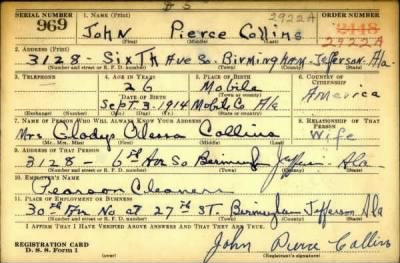 SERIAL NUMBER 1. NAME (Print) 2922A ORDER NUMBER
969 John Pierce Collins 2448
(First) (Middle) (Last) 2922A
2. ADDRESS (Print)
3128 - Sixth Ave So. Birmingham - Jefferson - Ala.
(Number and street or R. F. D. number) (Town) (County) (State)
3. TELEPHONE 4. AGE IN YEARS 5. PLACE OF BIRTH 6. COUNTRY OF CITIZENSHIP
26 Mobile
DATE OF BIRTH (Town or county) America
Sept. 3-1914 Mobile Co Ala
(Exchange) (Number) (Mo.) (Day) (Yr.) (State or country)
7. NAME OF PERSON WHO WILL ALWAYS KNOW YOUR ADDRESS 8. RELATIONSHIP OF THAT PERSON
Mrs. Gladys Collins Wife
(Mr., Mrs., Miss) (First) (Middle) (Last)
9. ADDRESS OF THAT PERSON
3128 - 6th Ave So Birmingham Jefferson Ala
(Number and street or R. F. D. number) (Town) (County) (State)
10. EMPLOYER'S NAME
Pearson Cleaners
11. PLACE OF EMPLOYMENT OR BUSINESS
30th Av. No at 27th St. Birmingham Jefferson Ala
(Number and street or R. F. D. number) (Town) (County) (State)
I AFFIRM THAT I HAVE VERIFIED ABOVE ANSWERS AND THAT THEY ARE TRUE.
REGISTRATION CARD John Pierce Collins
D. S. S. Form 1 (Registrant's signature)